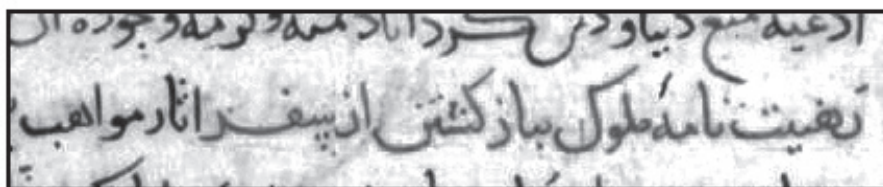 ادعیه منبع دنیا و دین کرداناد بمنه و کرمه وجوده ال
تهنیت نامهٔ ملوک بباز کشتن از سفر اثار مواهب